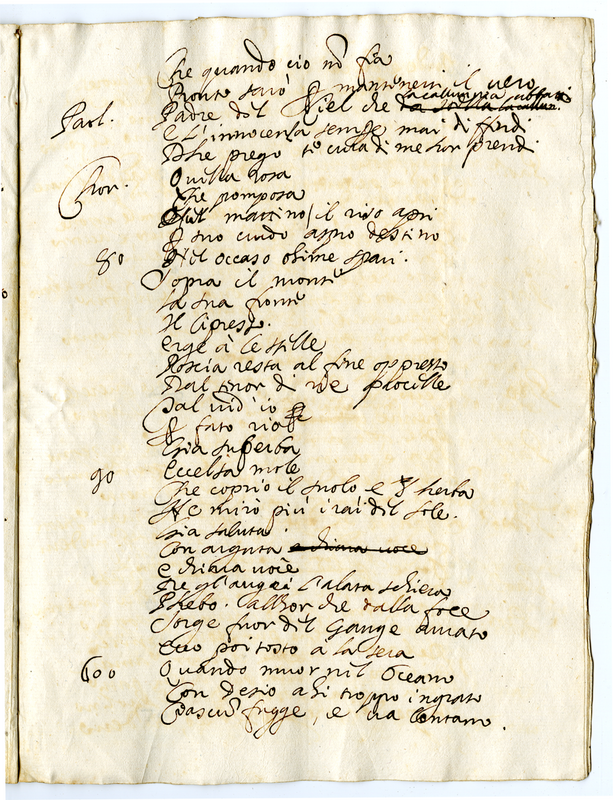 Che quando ciò nō fia
Pronto sarò p mantenerti il vero
Parl. Padre del Ciel che la calunnia
E l'innocenza sempre mai difendi
Deh prego tè cura di me hor prendi
Chor. Quella Rosa
Che pomposa
Nel mattino il riso aprì
P suo crudo aspro destino
80 Nel occaso ohime sparì.
Sopra il monte
La sua fronte
Il Cipresso
erge à le stelle
Poscia resta al fine oppresso
Dal furor di rie procelle
Pal vid' io
P fato rio
Gia superba
90 eccelsa mole
Che coprio il suolo e l' herba
Ne mirò più i rai del sole.
Gia saluta
Con arguta e chiara uoce
e chiara uoce
Trà gl'augei l'alata schiera
Phebo. all'hor che dalla foce
Sorge fuor del Gange aurato
ecco poi tosto à la sera
600 Quando muor nel Oceano
Con desio a lui troppo ingrato
Ciascū fugge, e và lontano.